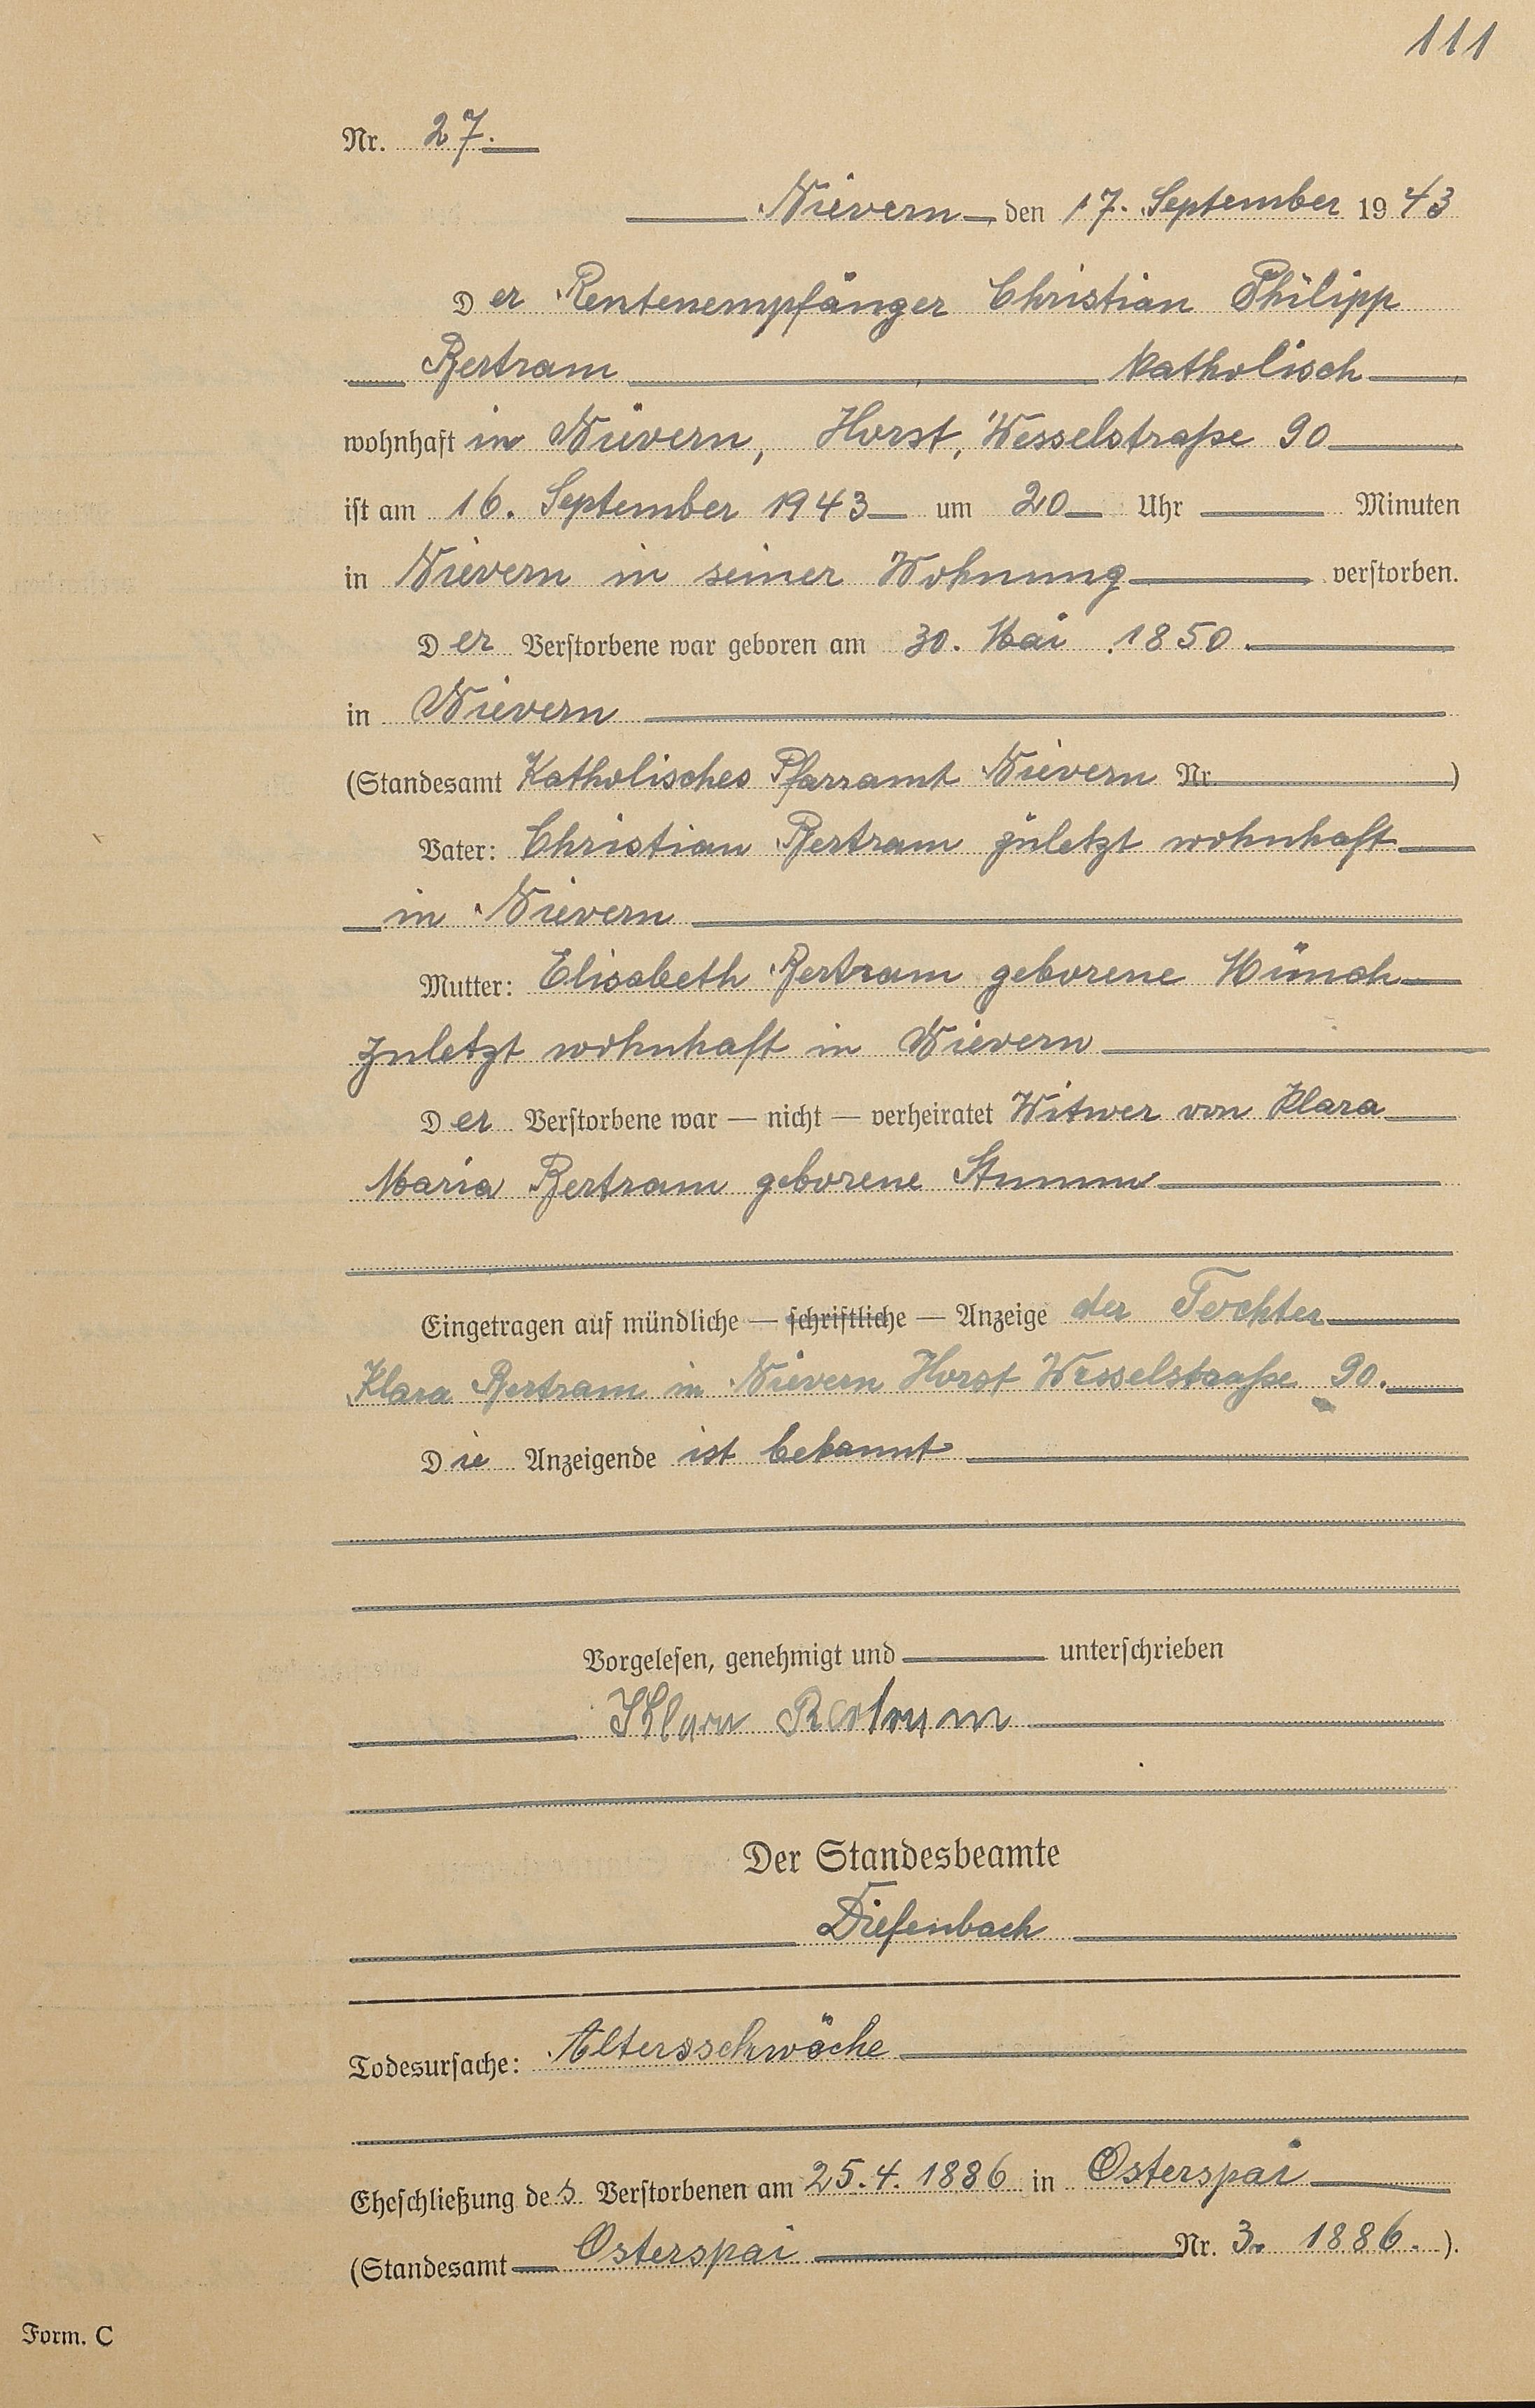 111
Nr. 27.
Nievern, den 17. September 1943
Der Rentenempfänger Christian Philipp
Bertram katholisch
wohnhaft in Nievern, Horst, Wesselstraße 90
ist am 16. September 1943 um 20 Uhr Minuten
in Nievern in seiner Wohnung verstorben.
Der Verstorbene war geboren am 30. Mai 1850.
in Nievern
(Standesamt Katholisches Pfarramt Nievern Nr. )
Vater: Christian Bertram zuletzt wohnhaft
in Nievern
Mutter: Elisabeth Bertram geborene Münch
zuletzt wohnhaft in Nievern
Der Verstorbene war — nicht — verheiratet Witwer von Klara
Maria Bertram geborene Stumm
Eingetragen auf mündliche — schriftliche — Anzeige der Tochter
Klara Bertram in Nievern Horst Wesselstraße 90.
Die Anzeigende ist bekannt
Vorgelesen, genehmigt und unterschrieben
Klara Bertram
Der Standesbeamte
Diefenbach
Todesursache: Altersschwäche
Eheschließung des Verstorbenen am 25.4.1886 in Osterspai
(Standesamt Osterspai Nr. 3. 1886.).
Form. C